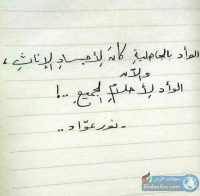 الوأد بالجاهلية كان لأجساد الإناث ،
والآن
الوأد لأحلام الجميع ..!
- نور عوّاد ..